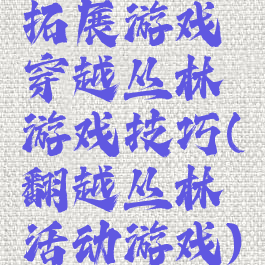 拓展游戏
穿越丛林
游戏技巧(
翻越丛林
活动游戏)